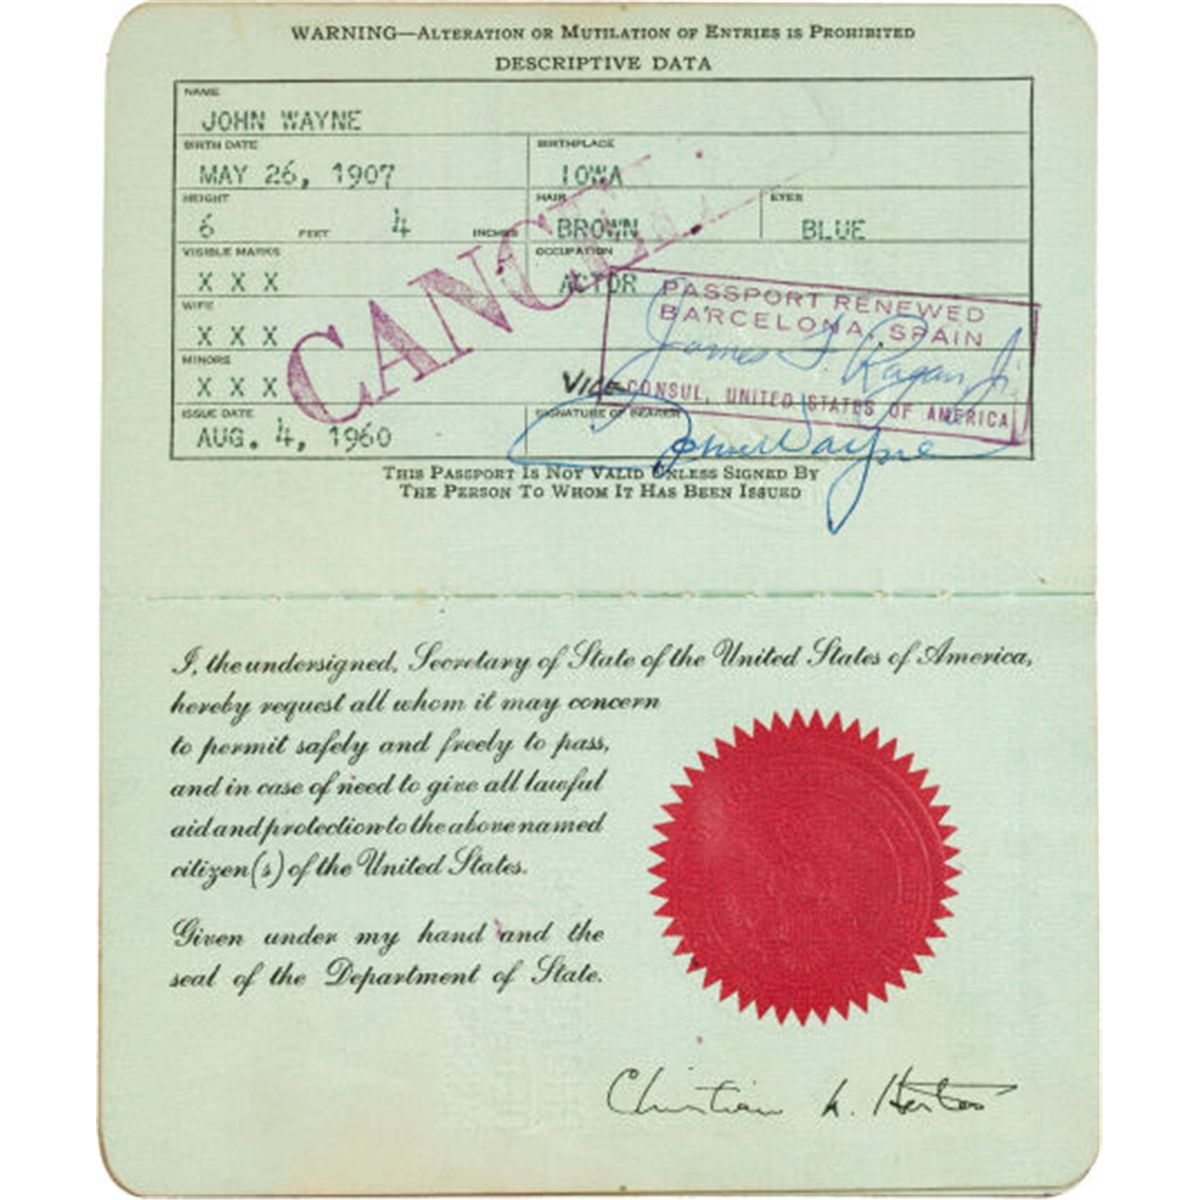 WARNING—ALTERATION OR MUTILATION OF ENTRIES IS PROHIBITED
DESCRIPTIVE DATA
NAME
JOHN WAYNE
BIRTH DATE BIRTHPLACE
MAY 26, 1907 IOWA
HEIGHT HAIR EYES
6 FEET 4 INCHES BROWN BLUE
VISIBLE MARKS OCCUPATION
X X X ACTOR
WIFE
X X X
MINORS
X X X
ISSUE DATE SIGNATURE OF BEARER
AUG. 4, 1960
CANCEL
PASSPORT RENEWED
BARCELONA, SPAIN
James F. Ragan Jr.
VICE CONSUL, UNITED STATES OF AMERICA
John Wayne
THIS PASSPORT IS NOT VALID UNLESS SIGNED BY
THE PERSON TO WHOM IT HAS BEEN ISSUED
I, the undersigned, Secretary of State of the United States of America,
hereby request all whom it may concern
to permit safely and freely to pass,
and in case of need to give all lawful
aid and protection to the above named
citizen(s) of the United States.
Given under my hand and the
seal of the Department of State.
Christian A. Herter